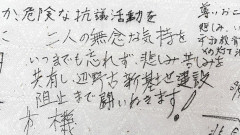 か、危険な抗議活動を
二人の無念な気持を
いつまでも忘れず、悲しみ苦しみを
共有し、辺野古新基地建設
阻止まで闘いぬきます!
尊いお二
悲しみ、い